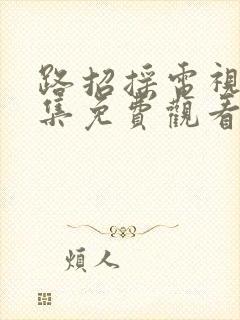 路招採电視
集免費觀看
煩人